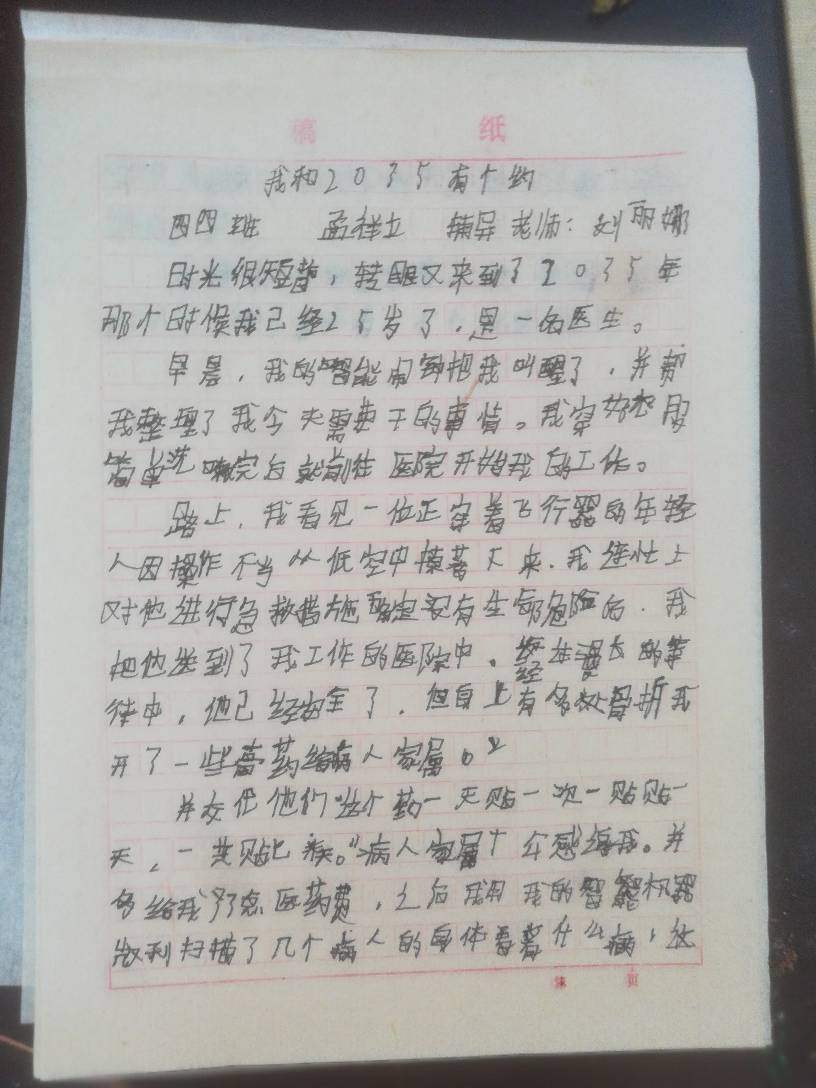 稿 纸
我和2035有个约
四四班 孟祥立 辅导老师：刘丽娜
时光很短暂，转眼又来到了2035年
那个时候我已经25岁了，是一名医生。
早晨，我的智能闹钟把我叫醒了，并帮
我整理了我今天需要干的事情。我穿好衣服
简单洗嗽完后就前往医院开始我的工作。
路上，我看见一位正穿着飞行器的年轻
人因操作不当从低空中摸着下来，我连忙上
对他进行急救措施确定没有生命危险后，我
把他送到了我工作的医院中，经在漫长的等
待中，他已经安全了，但身上有多处骨折我
开了一些膏药给病人家属。
并交代他们“这个药一天贴一次一贴贴一
天，一共贴七天。”病人家属十分感谢我。并
多给我了点医药费，之后我用我的智能机器
扫描了几个病人的身体看着什么病，
第 页